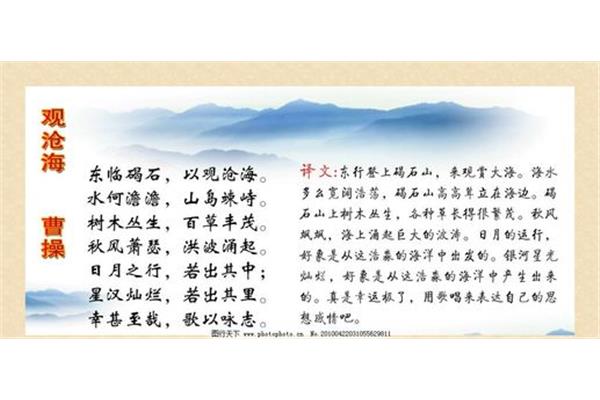 观沧海
曹操
东临碣石，以观沧海。
水何澹澹，山岛竦峙。
树木丛生，百草丰茂。
秋风萧瑟，洪波涌起。
日月之行，若出其中；
星汉灿烂，若出其里。
幸甚至哉，歌以咏志。
译文:东行登上碣石山，来观赏大海。海水
多么宽阔浩荡，碣石山高高耸立在海边。碣
石山上树木丛生，各种草长得很繁茂。秋风
飒飒，海上涌起巨大的波涛。日月的运行，
好象是从这浩淼的海洋中出发的。银河星光
灿烂，好象是从这浩淼的海洋中产生出来
的。真是幸运极了，用歌唱来表达自己的思
想感情吧。
图行天下 www.photophoto.cn No.20100422031055629811